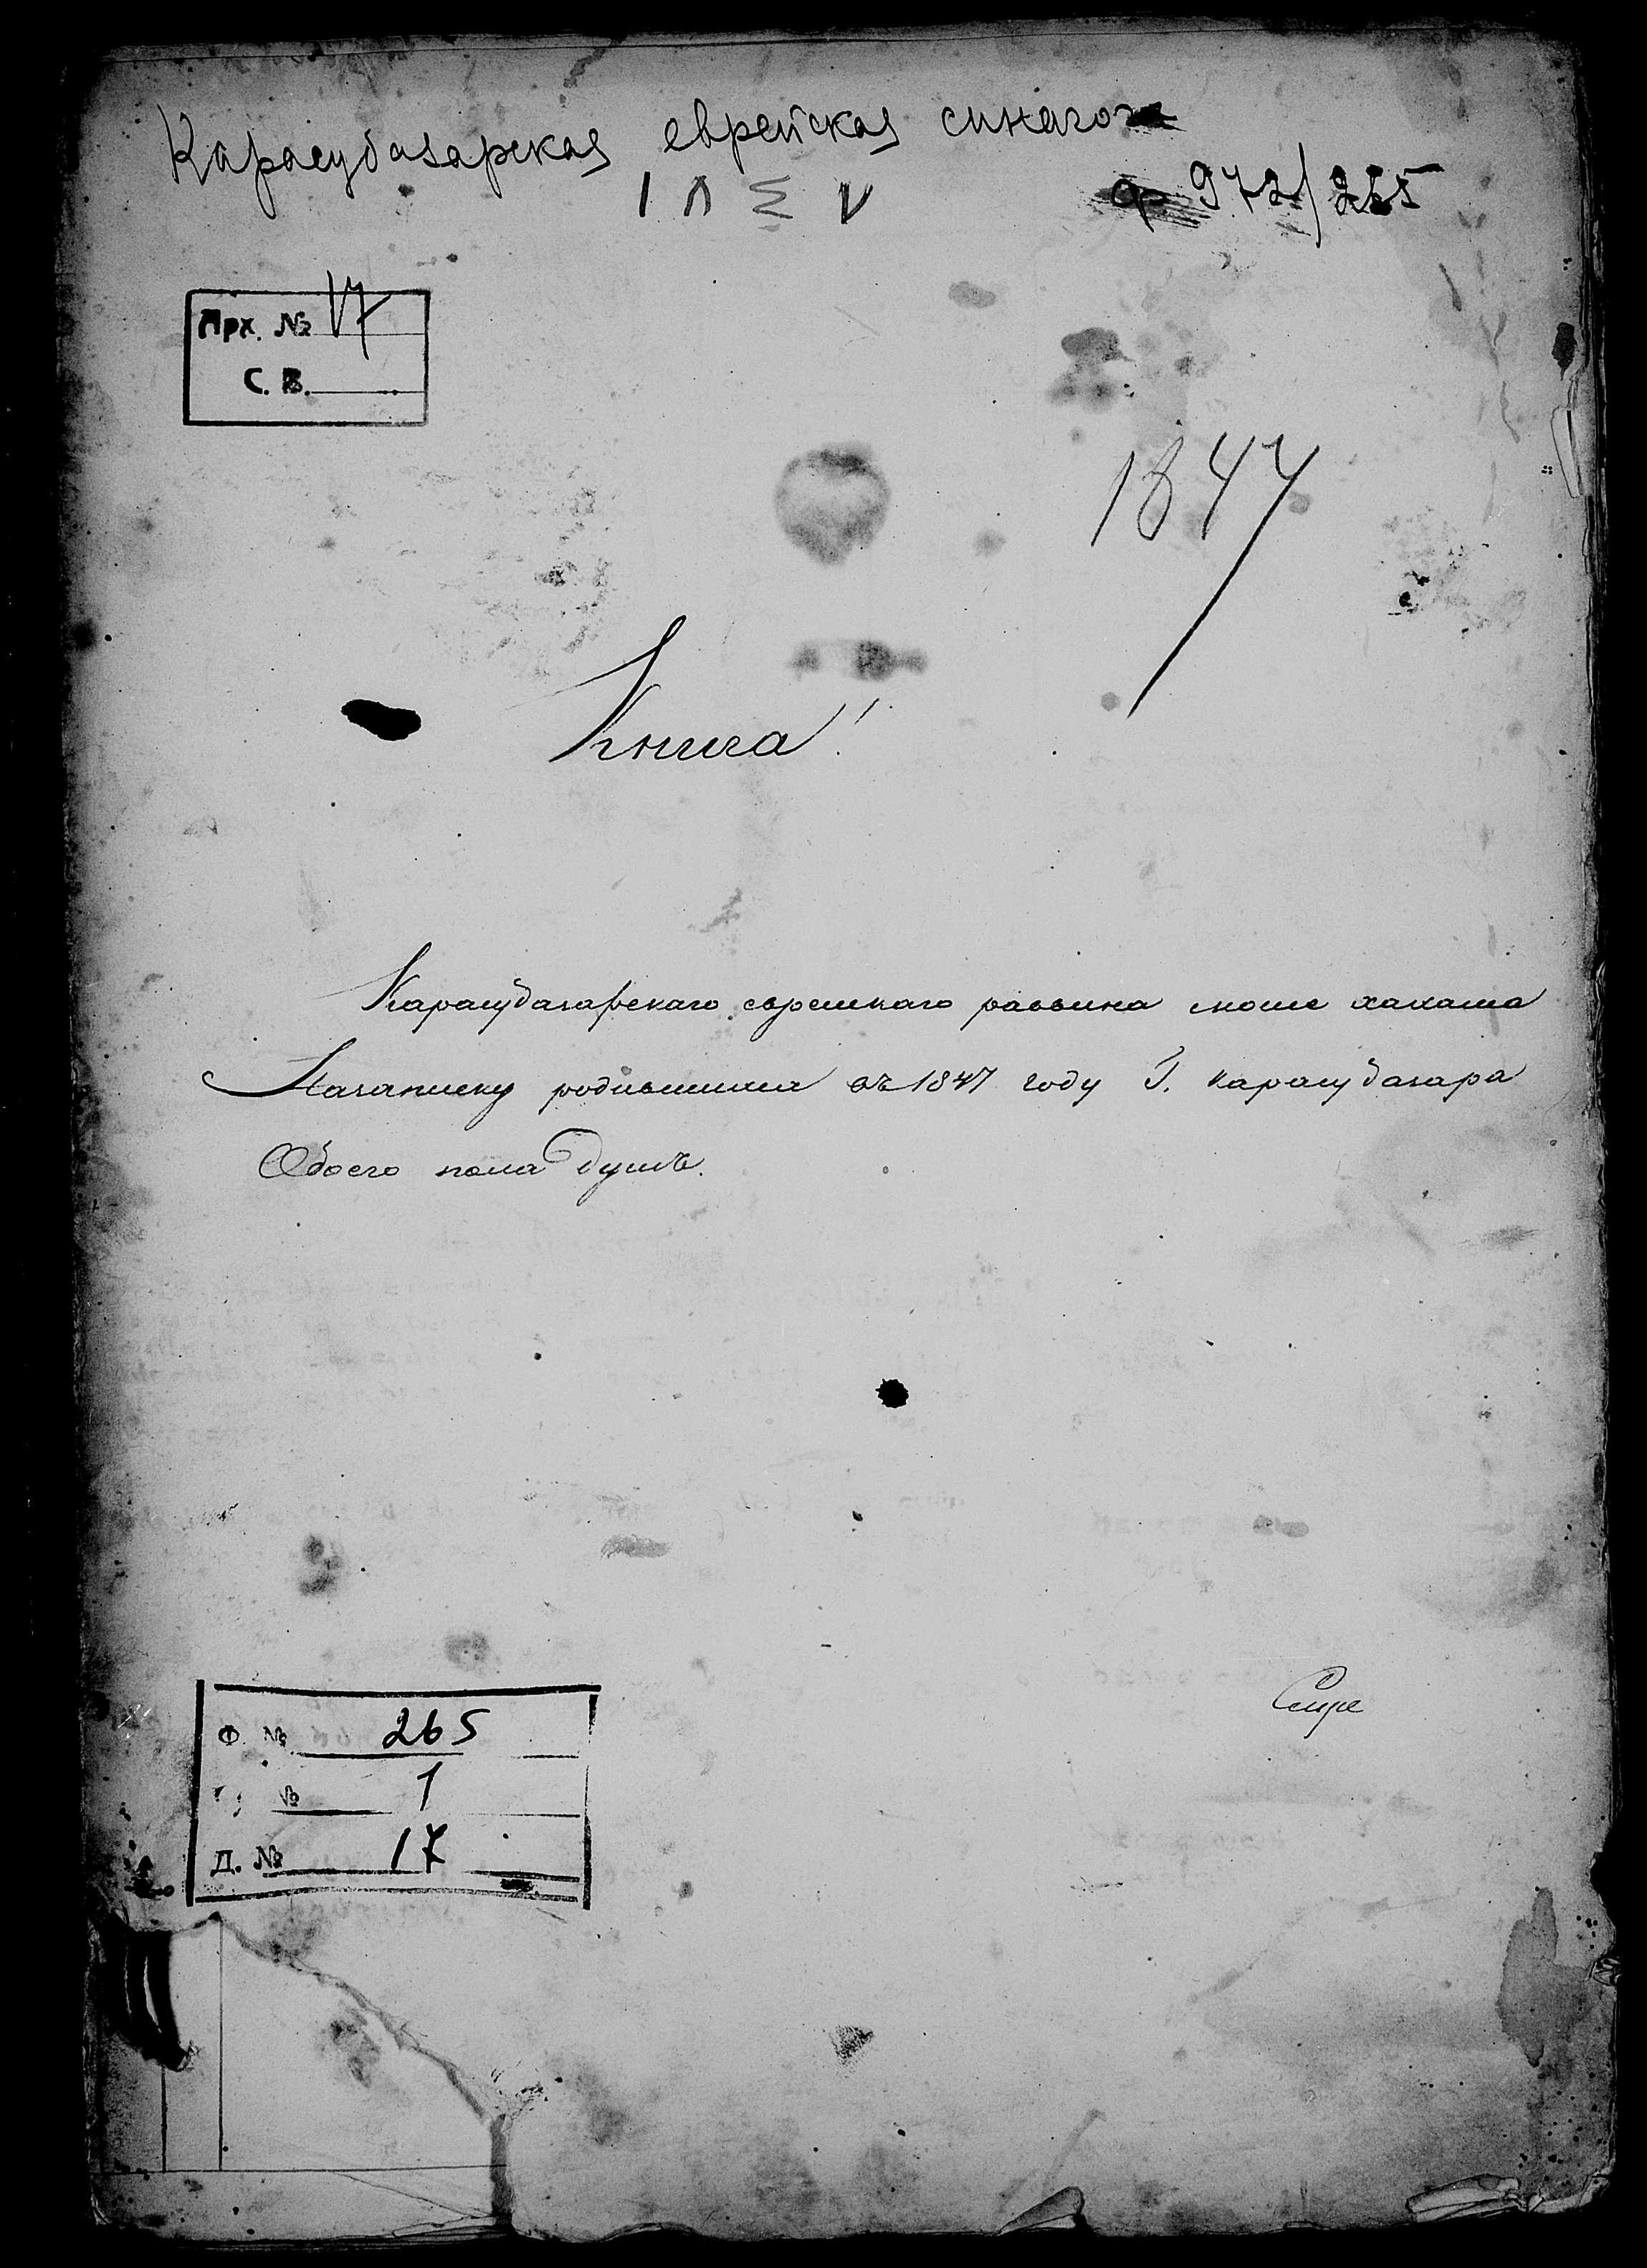 Карасубазарская еврейская синагога
1 Л Σ V
ф 972/265
Арх. № 17
С. В.
1847
Книга!
Карасубазарскаго еврейскаго раввина моше хахама
родившихся въ 1847 году Г. Карасубазара
Обоего пола душъ.
Ф. № 265
№ 1
Д. № 17